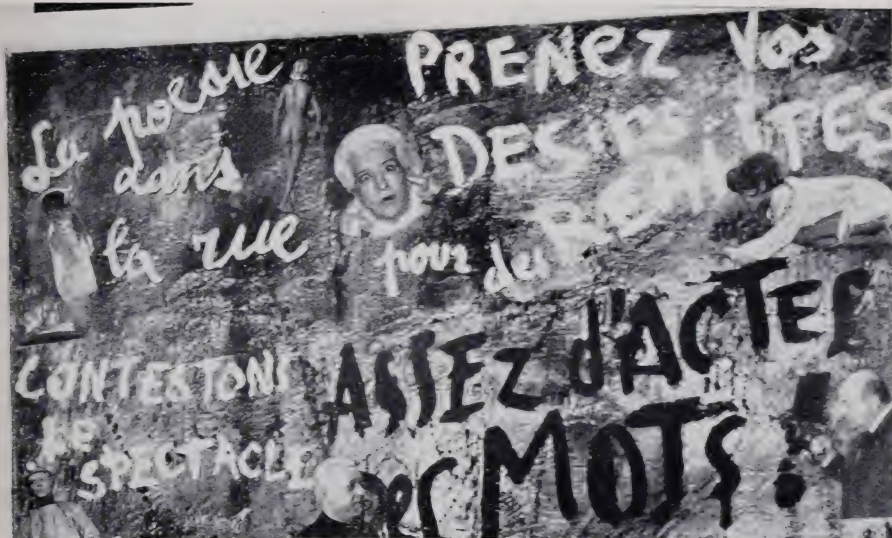 La poesie
dans
la rue
PRENEZ Vos
DESirs
pour des REALITES
CONTESTONS
LE
SPECTACLE
ASSEZ d'ACTES
des MOTS !